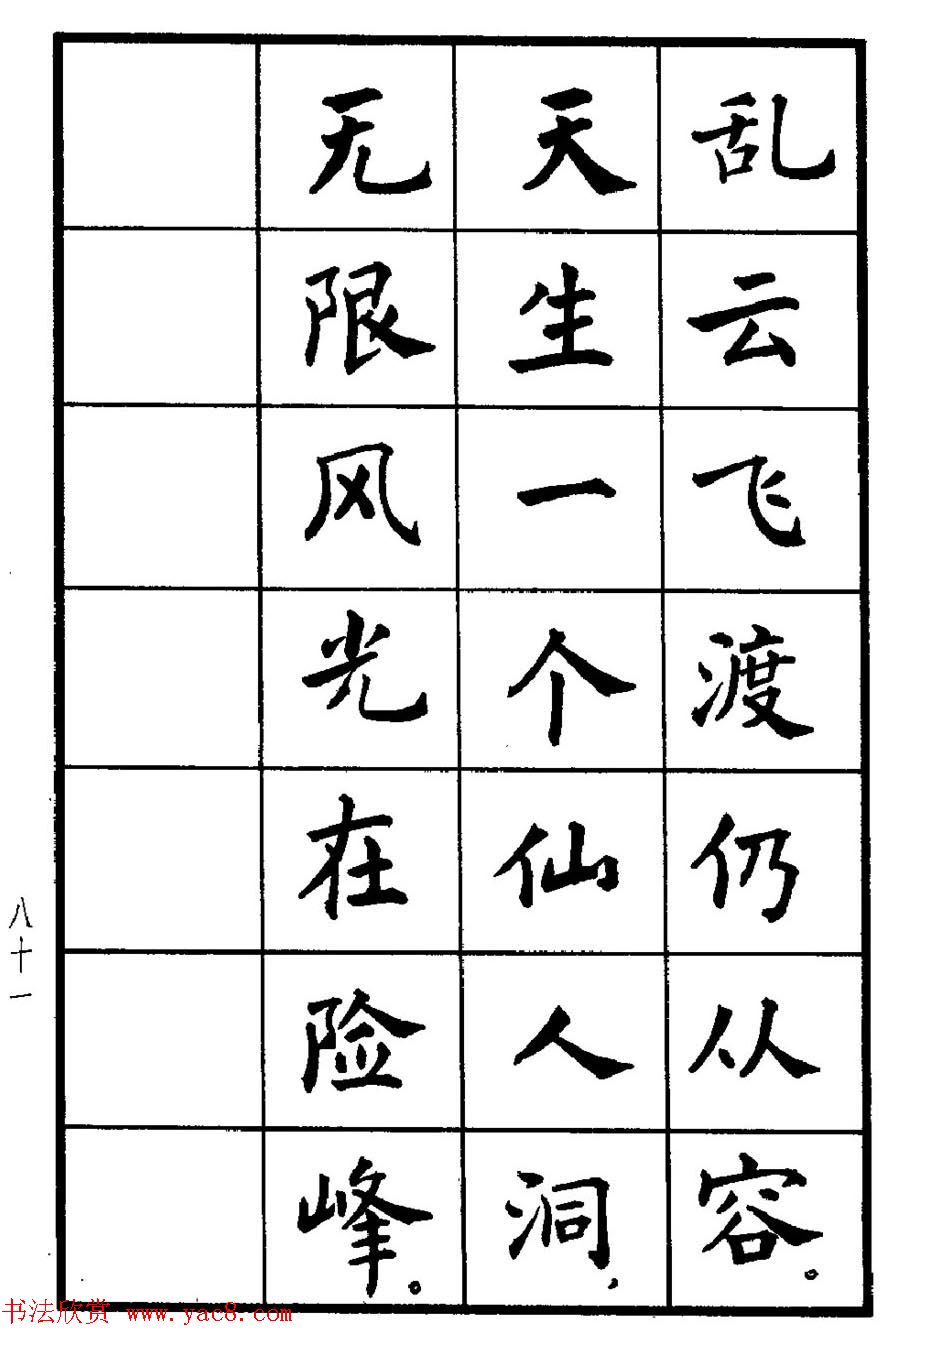 乱云飞渡仍从容。
天生一个仙人洞，
无限风光在险峰。
八十一
书法欣赏 www.yac8.com